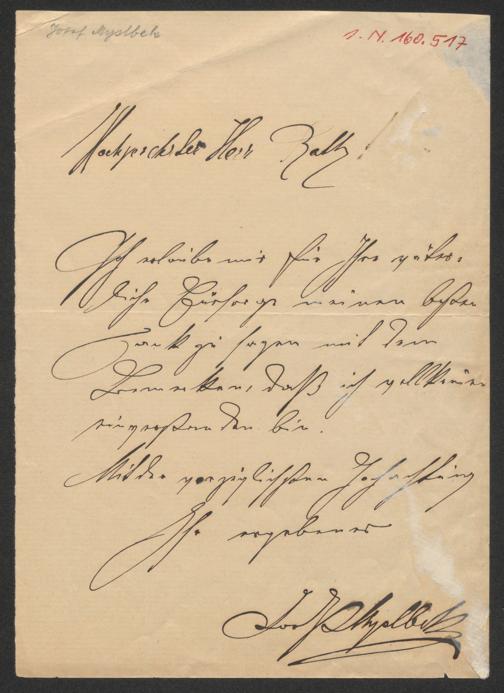 Josef Myslbek
I.N. 160.517
Hochgeehrter Herr
Ich erlaube mir für Ihre güte-
liche Fürsorge meinen besten
Dank zu sagen mit dem
Bemerken, daß ich vollkommen
einverstanden bin.
Mit der vorzüglichsten Hochachtung
Ihr ergebener
Josef Myslbek